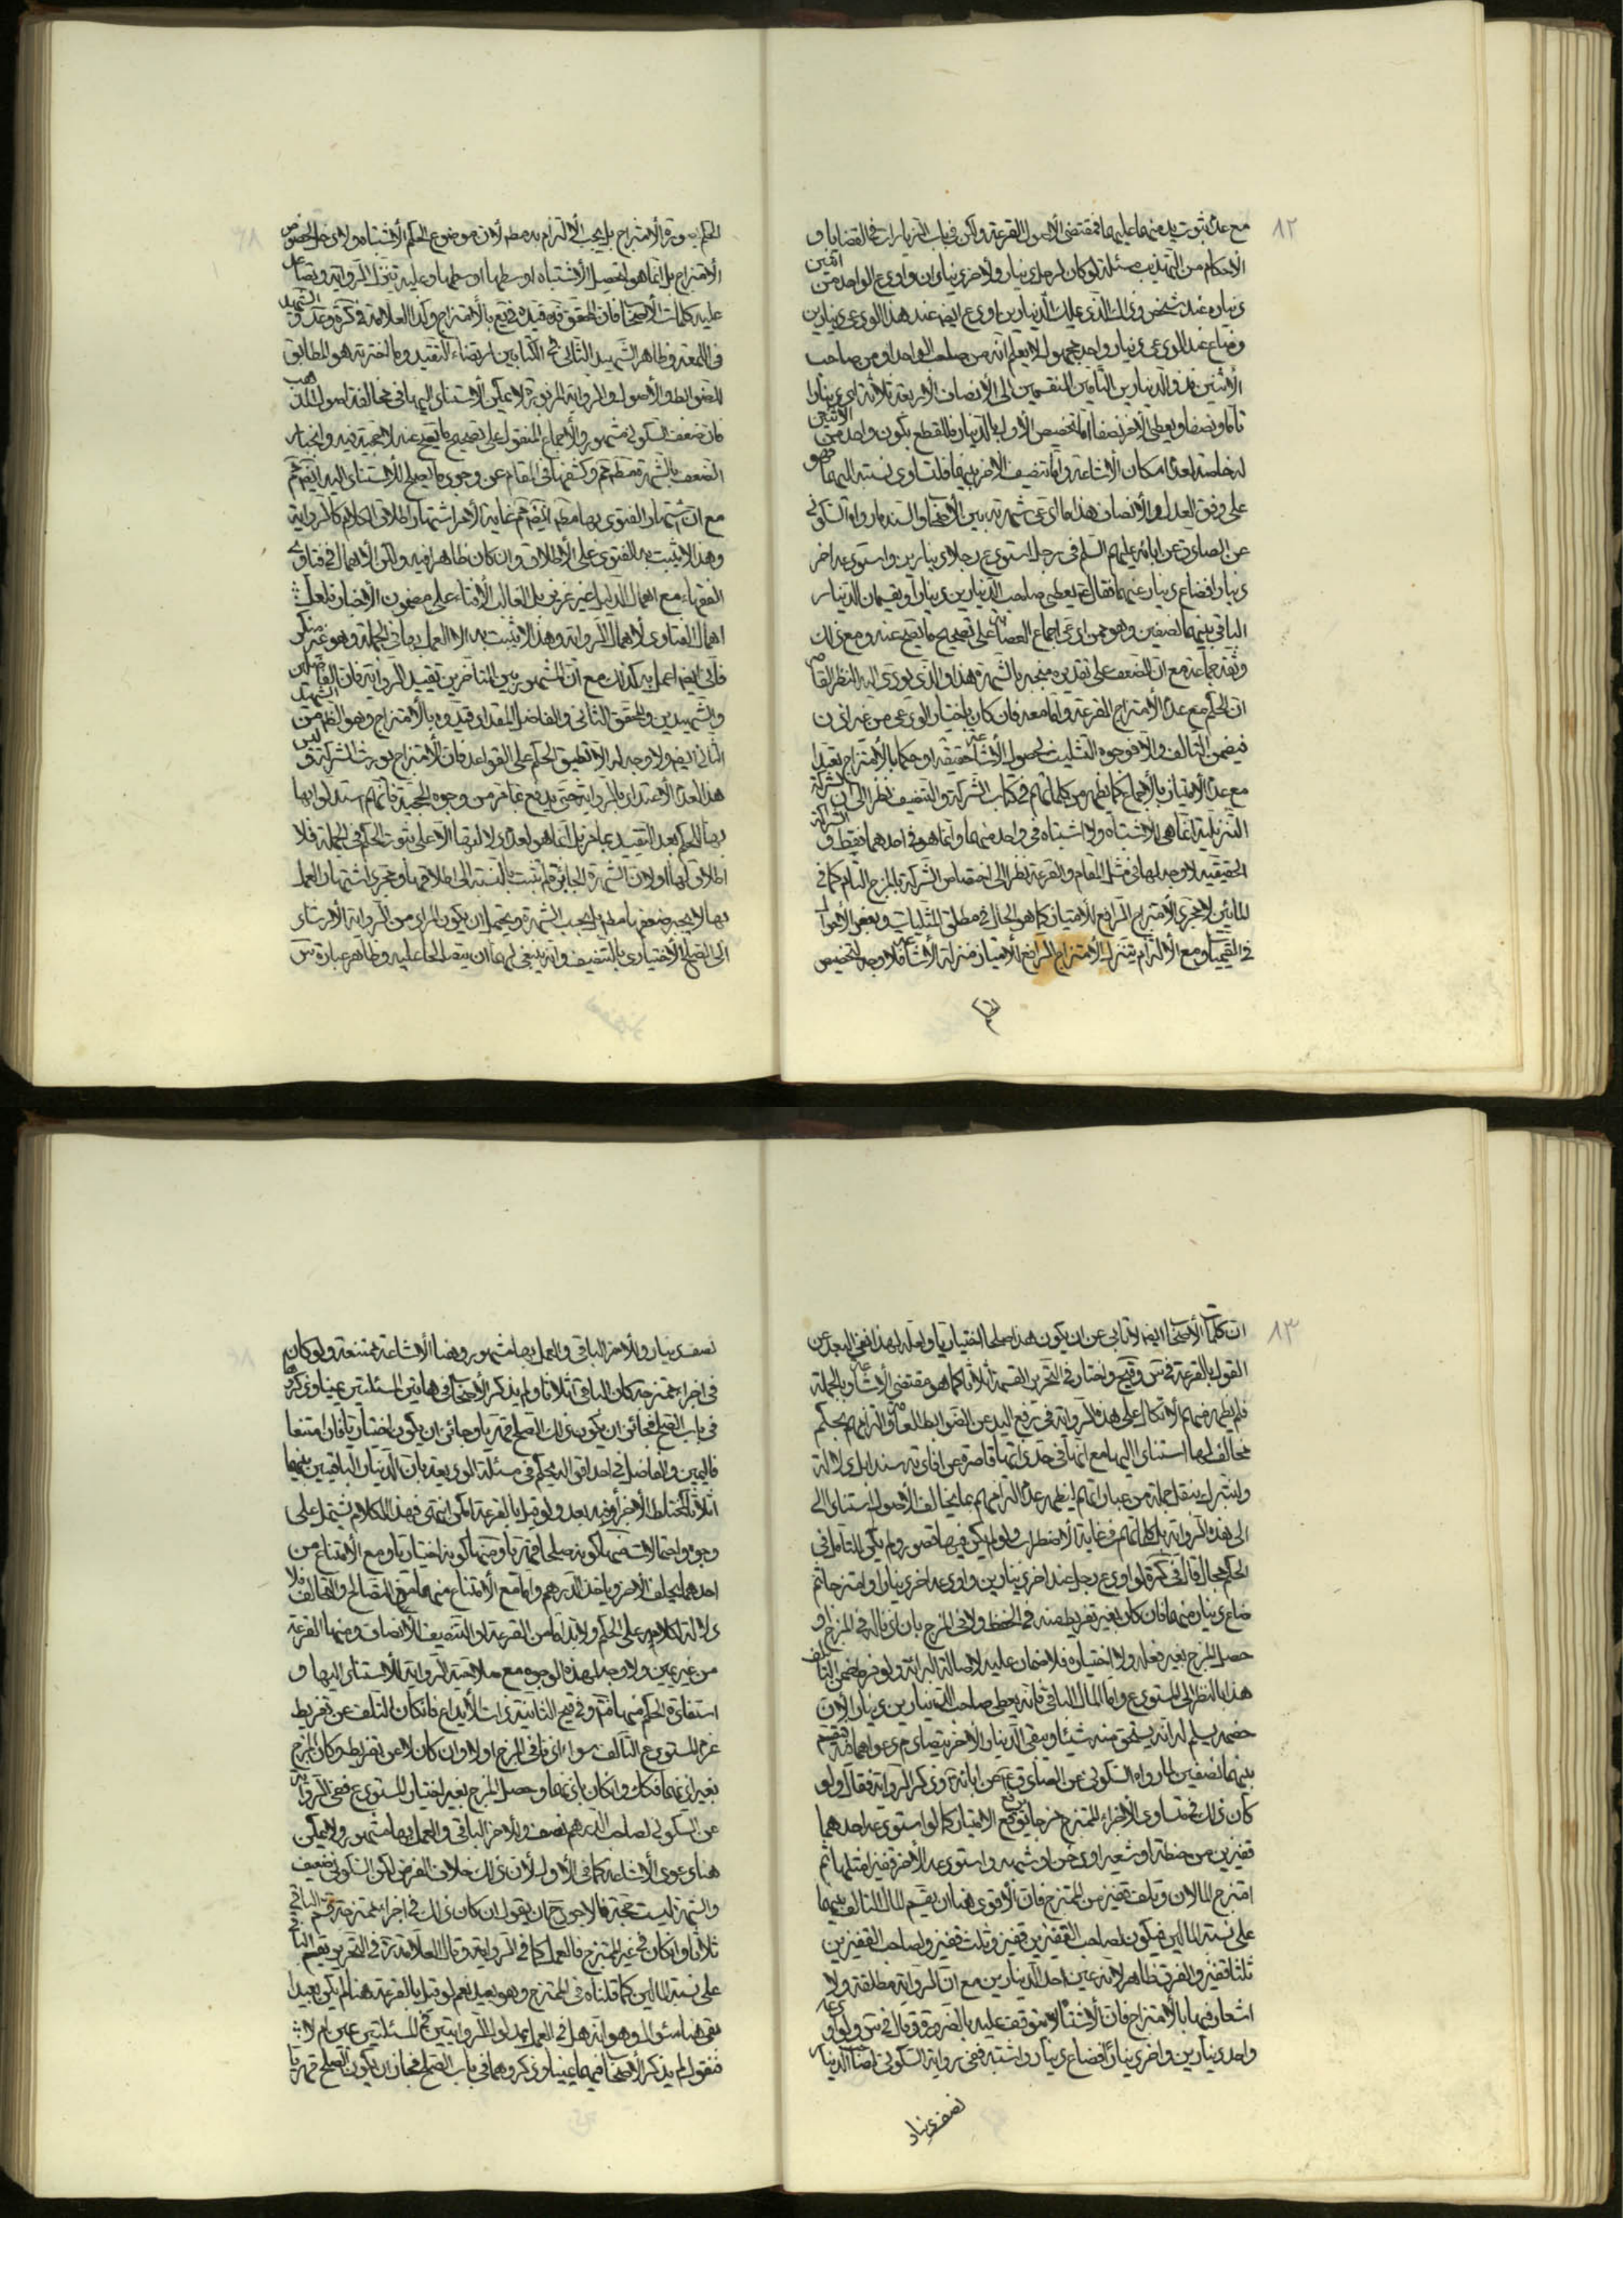 ٨٢
مع عدم ثبوت يد منهما عليهما فمقتضى الاصول القرعة ولكن في باب الزيادات في القضايا و
الاحكام من التهذيب مسئلة لو كان لرجل دينار ولاخر ديناران واودع الواحد من اثنين
ديناره عند شخص وذلك الذي عليك الدينارين اودع ايضا عند هذا الودعي دينارين
وضاع عند الودعي دينار واحد مجهول لا يعلم انه من صاحب الواحد او من صاحب
الاثنين فمن الدينارين الباقيين المنقسمين الى الانصاف الاربعة ثلاثة اي دينارا
تاما ونصفا ويعطى الاخر نصفا اما تخصيص الاول بالدينار فللقطع بكون واحد من الاثنين
له خاصة لعدم امكان الاشاعة واما تنصيف الاخر بينهما فلتساوي نسبته اليهما فهو
على وفق العدل والانصاف هذا ما ادعى شهرته بين الاصحاب والسند مارواه السكوني
عن الصادق عن ابائه عليهم السلم في رجل استودع رجلا دينارين واستودعه اخر
دينارا فضاع دينار منهما فقال ع يعطى صاحب الدينارين دينارا ويقسمان الدينار
الباقي بينهما نصفين وهو ممن ادعى اجماع العصابة على تصحيح ما يصح عنه ومع ذلك
وثقه جماعة مع ان الضعف على تقديره منجبر بالشهرة هذا والذي يؤدي اليه النظر القاصر
ان الحكم مع عدم الامتزاج القرعة واما معه فان كان باختيار الودعي من غير اذن
فيضمن التالف والا فوجوه التثليث لحصول الاشاعة حقيقة او حكما بالامتزاج تعبدا
مع عدم الامتياز بالاجماع كما يظهر من كلماتهم في كتاب الشركة والتنصيف نظرا الى ان الشركة
التنزيلية انما هي للاشتباه ولا اشتباه في واحد منهما وانما هو في احدهما فقط و الشركة
الحقيقية لا وجه لها في مثل المقام والقرعة نظرا الى اختصاص الشركة بالمزج التام كما في
المايعين لا مجرى الامتزاج الرافع للامتياز كما هو الحال في مطلق المثليات وبعض الاموال
في القيميات ومع الالتزام بتنزيل الامتزاج الرافع للامتياز منزلة الاشاعة فلا وجه لتخصيص
الحكم
الحكم بصورة الامتزاج بل يجب الالتزام به مطلقا لان موضوع الحكم الاشتباه ولا دخل لخصوص
الامتزاج بل انما هو لتحصيل الاشتباه او سطها او سطها وعليه تنزل الرواية ويصاعد
عليه كلمات الاصحاب فان المحقق قده قيده في يع بالامتزاج وكذا العلامة في كرة وعد و الشهيد
في اللمعة وظاهر الشهيد الثاني في الكتابين ارتضاء التقييد وما اخترته هو المطابق
للضوابط والاصول والرواية المزبورة لا يمكن الاستناد اليها في مخالفة اصول المذهب
فان ضعف السكوني مشهور والاجماع المنقول على تصحيح ما يصح عنه لا حجية فيه وانجبار
الضعف بالشهرة مط مم وكشفها في المقام عن وجود ما يصلح للاستناد اليه ايضا مم
مع ان اشتهار الفتوى بها مط ايضا مم غاية الامر اشتهار اطلاق الكلام كالرواية
وهذا لا يثبت به الفتوى على الاطلاق وان كان ظاهرا فيه ولكن الاهمال في فتاوى
الفقهاء مع اهمال الدليل غير عزيز بل الغالب الافتاء على مضمون الاخبار فلعل
اهمال الفتاوى لاهمال الرواية وهذا لا يثبت به الا العمل بها في الجملة وهو غير منكر
فاني ايضا اعمل بها كذلك مع ان المشهور بين المتاخرين تقييد الرواية فان الفاضلين
والشهيدين والمحقق الثاني والفاضل المقداد قيدوه بالامتزاج وهو الظاهر من الشهيد
الثاني ايضا ولا وجه له الا تطبيق الحكم على القواعد فان الامتزاج يورث الشركة و ليس
هذا لعدم الاعتداد بالرواية حتى يدفع بما مر من وجوه الحجية فانهم استدلوا بها
بها للحكم بعد التقييد بما مر بل انما هو لعدم دلالتها الا على ثبوت الحكم في الجملة فلا
اطلاق لها اولا لان الشهرة الجابرة لم يثبت بالنسبة الى اطلاقها ومجرد اشتهار العمل
بها لا يجبر ضعفها مط بل بحسب الشهرة ويحتمل ان يكون المراد من الرواية الارشاد
الى الصلح الاختياري بالتنصيف وانه ينبغي لهما ان يتصالحا عليه وظاهر عبارة س
٨٣
ان كلمات الاصحاب ايضا لا تابى عن ان يكون هذا صلحا اختياريا ولعله لهذا نفى البعد عن
القول بالقرعة في س وقبح واختار في التحرير القسمة اثلاثا كما هو مقتضى الاشاعة وبالجملة
فلم يظهر منهم الاتكال على هذه الرواية في رفع اليد عن الضوابط العامة والتزامهم بحكم
مخالف لها استنادا اليها مع انها في حد ذاتها قاصرة عن افادته سندا بل دلالة
ولنتبرك بنقل جملة من عباراتهم ليظهر عدم التزامهم بما يخالف الاصول استنادا الى
الى هذه الرواية بل كلماتهم في غاية الاضطراب ولو لم يكن فيها قصور لم يكن للتامل في
الحكم مجال قال في كرة لو اودع رجل عند اخر دينارين واودعه اخر دينارا وامتزجا ثم
ضاع دينار منهما فان كان بغير تفريط منه في الحفظ ولا في المزج بان اذنا له في المزج او
حصل المزج بغير فعله ولا اختياره فلا ضمان عليه لاصالة البرائة ولو فرط ضمن التالف
هذا بالنظر الى المستودع واما المال الباقي فانه يعطى صاحب الدينارين دينارا لان
خصمه يسلم له انه لا يستحق منه شيئا ويبقى الدينار الاخر يتصادم دعواهما فيه فيقسم
بينهما نصفين لما رواه السكوني عن الصادق ع عن ابائه وذكر الرواية فقال ولو
كان ذلك في متساوي الاجزاء الممتزج مزجا يرفع الامتياز كما لو استودعه احدهما
قفيزين من حنطة او شعير او دخن او شبهه واستودعه الاخر قفيزا مثلها ثم
امتزج المالان وتلف قفيز من الممتزج فان الاقوى هنا ان يقسم المال التالف بينهما
على نسبة المالين فيكون لصاحب القفيزين قفيز وثلث قفيز ولصاحب القفيزين
ثلثا قفيز والفرق ظاهر لانه عين احد الدينارين مع ان الرواية مطلقة ولا
اشعار فيها بالامتزاج فان الاشتباه لا يتوقف عليه بالضرورة وقال في س ولو اودعه
واحد دينارين واخر دينارا فضاع دينار واشتبه ففي رواية السكوني لصاحب الدينار
نصف دينار
نصف دينار وللاخر الباقي والعمل بها مشهور وهنا الاشاعة ممتنعة ولو كان
في اجزاء ممتزجة كان الباقي اثلاثا ولم يذكر الاصحاب في هاتين المسئلتين يمينا وذكروها
في باب الصلح فجائز ان يكون ذلك الصلح قهريا وجائز ان يكون اختياريا فان امتنعا
فاليمين والفاضل في احد اقواله يحكم في مسئلة الوديعة بان الدينارين الباقيين بينهما
اثلاثا كمختلط الاجزاء وفيه بعد ولو قيل بالقرعة امكن انتهى فهذا الكلام يشتمل على
وجوه واحتمالات منها كونه صلحا قهريا ومنها كونه اختياريا ومع الامتناع من
احدهما يحلف الاخر وياخذ الدرهم واما مع الامتناع منهما من التصالح والتحالف فلا
دلالة لكلامهم على الحكم ولابد اما من القرعة او التنصيف للانصاف ومنها القرعة
من غير يمين ولا وجه لهذه الوجوه مع صلاحية الرواية للاستناد اليها و
استفادة الحكم منها تامة وفي قيح الثانية ذات الايداع فان كان التلف عن تفريط
غرم المستودع التالف سواء اذنا في المزج او لا وان كان لا عن تفريط وكان المزج
بغير اذنهما فكك وان كان باذنهما وحصل المزج بغير اختيار المستودع ففي الرواية
عن السكوني لصاحب الدرهم نصف وللاخر الباقي والعمل بها مشهور ولا يمكن
هنا دعوى الاشاعة كما في الاول لان ذلك خلاف الفرض لكن السكوني ضعيف
والشهرة ليست حجة فالاجود ح ان يقول ان كان ذلك في اجزاء ممتزجة قسم الباقي
ثلاثا وان كان في غير الممتزج فالعمل كما في الرواية وقال العلامة قده في التحرير يقسم الباقي
على نسبة المالين كما قلناه في الممتزج وهو بعيد نعم لو قيل بالقرعة هنا لم يكن بعيدا
بقي هنا سئوال وهو انه هل في العمل بمدلول الروايتين في المسئلتين يمين ام لا
فنقول لم يذكر الاصحاب فيهما يمينا وذكروهما في باب الصلح فجاز ان يكون الصلح قهريا